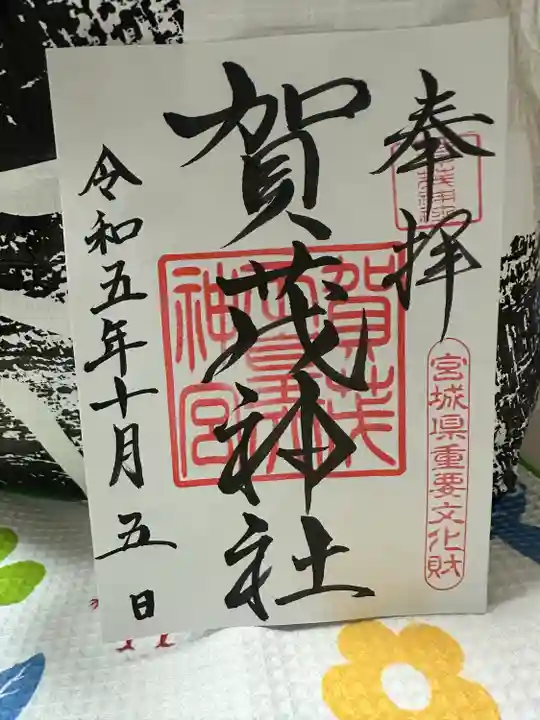 奉拝
宮城県重要文化財
賀茂神社
賀茂
神宮
令和五年十月五日